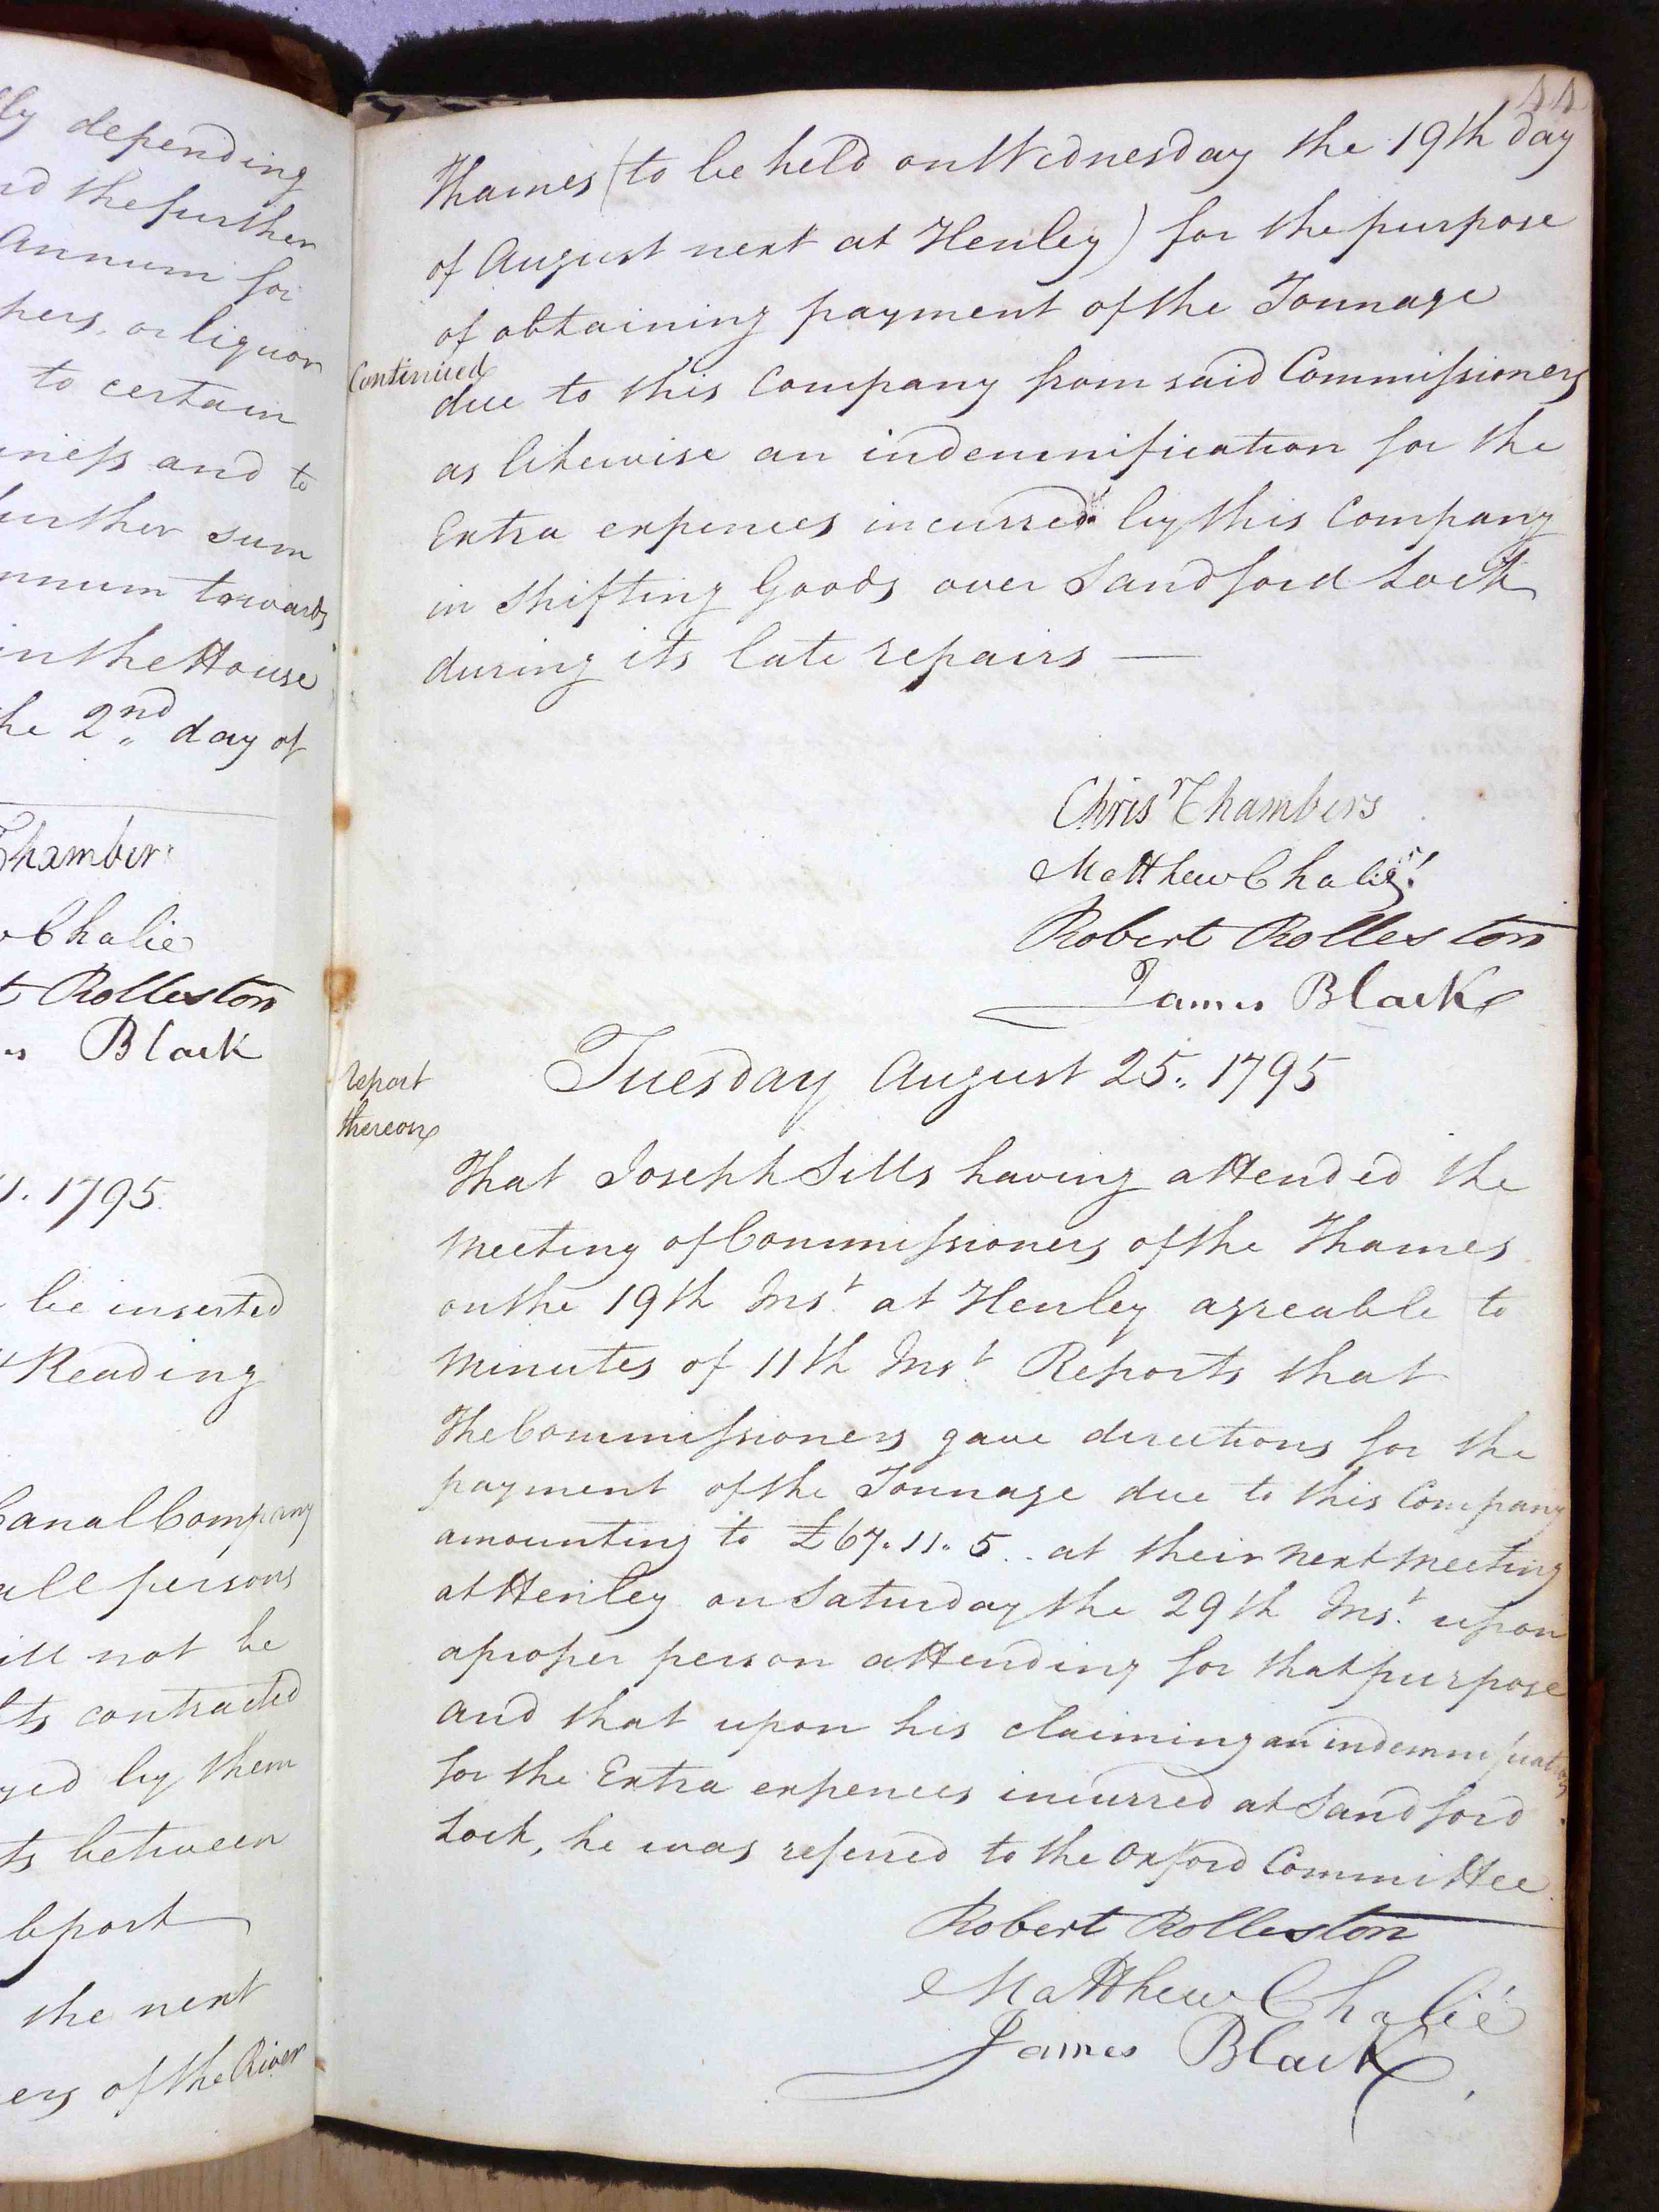 ly depending
nd the further
Annum for
pers, or liquor
to certain
iness and to
further sum
nnum towards
in the House
he 2nd day of
Chambers
w Chalie
t Rolleston
es Black
1. 1795.
be inserted
t Reading
Canal Company
all persons
ill not be
ts contracted
yed by them
ts between
eport
the next
ers of the River
Thames (to be held on Wednesday the 19th day
of August next at Henley) for the purpose
of obtaining payment of the Tonnage
Continued
due to this Company from said Commissioners
as likewise an indemnification for the
Extra expences incurred by this Company
in Shifting Goods over Sandford Lock
during its late repairs —
Chrisr Chambers
Matthew Chalié
Robert Rolleston
James Black
Report
thereon
Tuesday August 25. 1795
That Joseph Sills having attended the
Meeting of Commissioners of the Thames
on the 19th Inst. at Henley agreable to
Minutes of 11th Inst. Reports that
The Commissioners gave directions for the
payment of the Tonnage due to this Company
amounting to £67.11.5.. at their next Meeting
at Henley on Saturday the 29th Inst. upon
a proper person attending for that purpose
and that upon his claiming an indemnification
for the Extra expences incurred at Sandford
Lock, he was referred to the Oxford Committee.
Robert Rolleston
Matthew Chalié
James Black